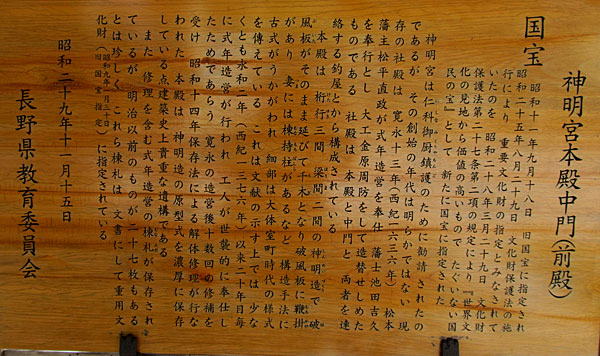 神明宮本殿中門(前殿)
国宝
昭和十一年九月十八日 旧国宝に指定され
昭和二十五年八月二十九日 文化財保護法の施
行により 重要文化財の指定とみなされて
いたのを 昭和二十八年三月二十九日 文化財
保護法第二十七条第二項の規定により『世界文
化の見地から価値の高いもので たぐいない国
民の宝』として 新たに国宝に指定された
神明宮は仁科御厨鎮護のために勧請されたの
であるが その創始の年代は明らかではない 現
存の社殿は 寛永十三年(西紀一六三六年) 松本
藩主松平直政が式年造営を奉仕 藩士池田吉久
を奉行とし 大工金原周防をして造替せしめた
ものである 社殿は 本殿と中門と 両者を連
絡する釣屋とから構成されている
本殿は 桁行三間 梁間二間の神明造で 破
風板がそのまま延びて千木となり破風板に鞭掛
があり 妻には棟持柱があるなど 構造手法に
古式がうかがわれ 細部は大体室町時代の様式
を伝えている これは文献の示す上では少な
くとも永和二年(西紀一三七六年)以来二十年日毎
に式年造営が行われ 工人が世襲的に奉仕し
たためであろう 寛永の造営後十数回の修補を
受け 昭和十四年保存法による解体修理が行な
われた 本殿は 神明造の原型式を濃厚に保存
している点建築史上貴重な遺構である
また 修理を含む式年造営の棟札が保存され
ているが 明治以前のものが二十七枚もある
とは珍しく これら棟札は 文書にして重用文
化財(昭和九年一月三十日旧国宝指定)に指定されている
昭和二十九年十一月十五日
長野県教育委員会